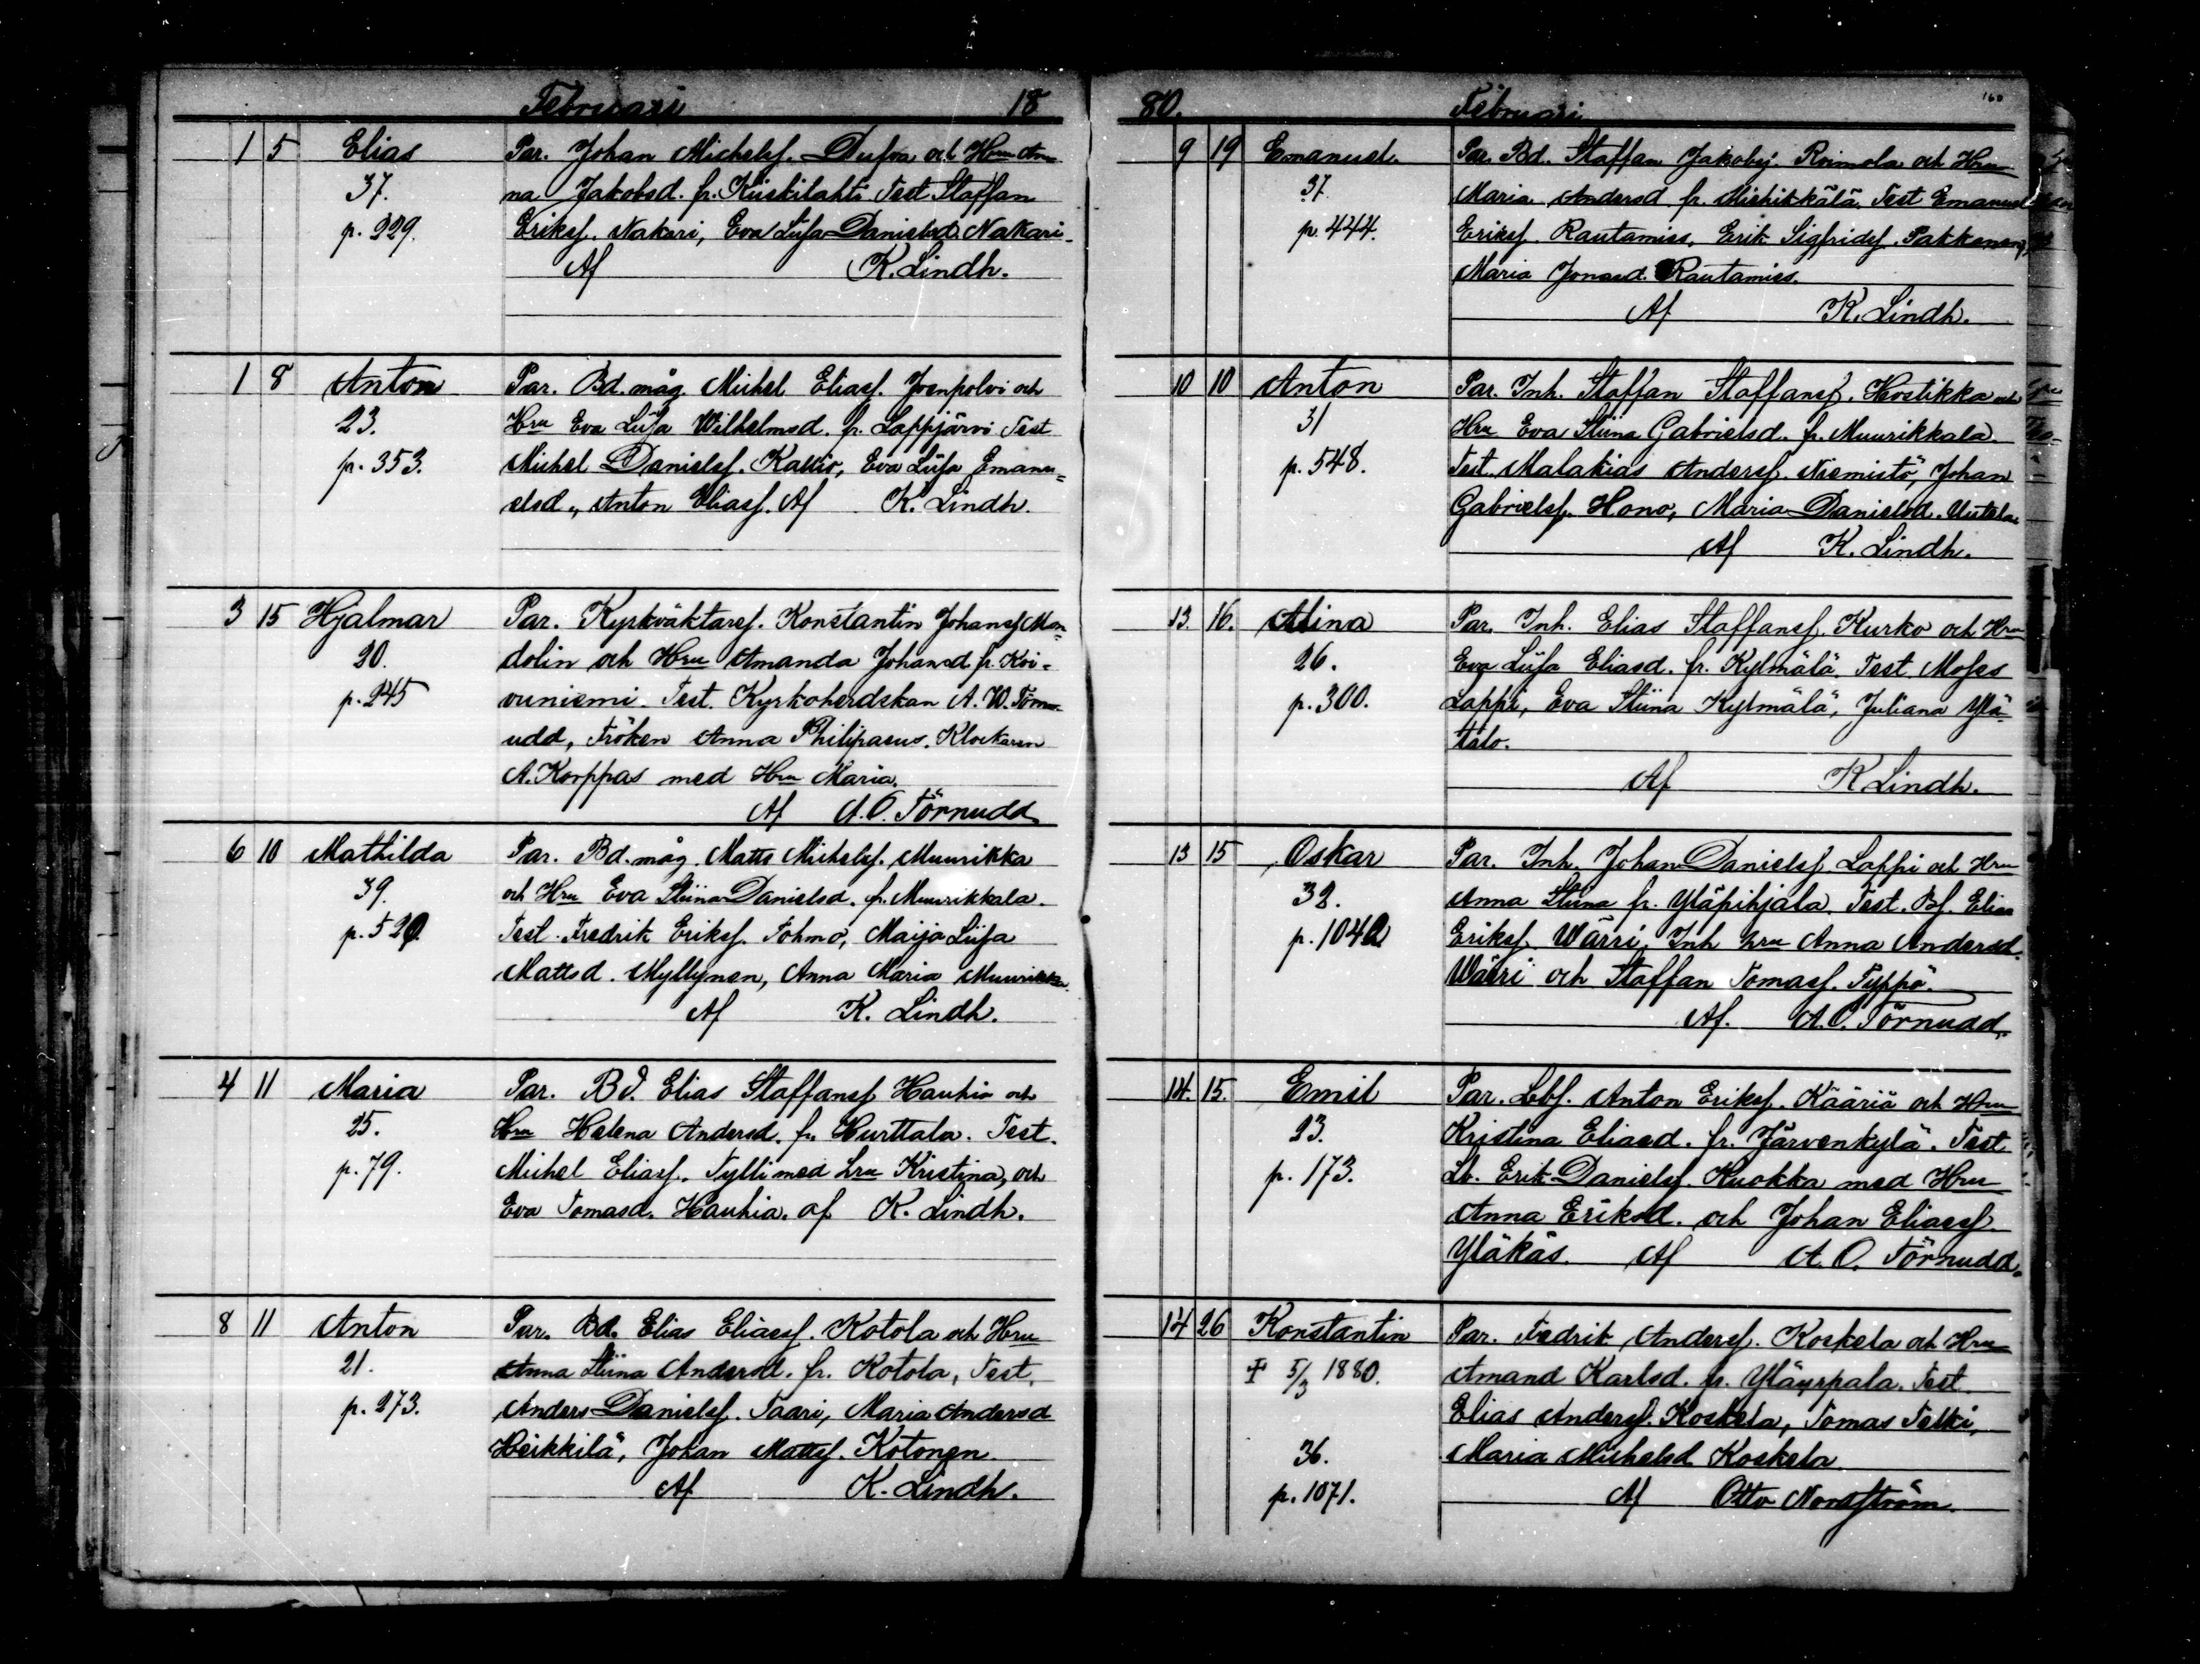 Februari 18
1 5 Elias Par. Johan Michelsf. Dufva och Hru An-
37. na Jakobsd. fr. Kiiskilahti Test Staffan
p. 229. Eriksf. Nakari, Eva Lisa Danielsd. Nakari.
Af K. Lindh.
1 8 Anton Par. Bd. måg. Michel Eliasf. Joenpolvi och
23. Hru Eva Lisa Wilhelmsd. fr. Lappjärvi Test
p. 353. Michel Danielsf. Kallio, Eva Lisa Emanu=
elsd., Anton Eliasf. Af K. Lindh.
3 15 Hjalmar Par. Kyrkväktaref. Konstantin Johansf Man
20. dolin och Hru Amanda Johansd. fr. Koi=
p. 245 vuniemi. Test. Kyrkoherdskan A. W. Törn-
udd, Fröken Anna Philipaeus, Klockaren
A. Korppas med Hru Maria.
Af A. O. Törnudd
6 10 Mathilda Par. Bd. måg. Matts Michelsf. Muurikka
39. och Hru Eva Stiina Danielsd. fr. Muurikkala.
p. 520. Test. Fredrik Eriksf. Tohmo, Maija Lisa
Mattsd. Myllynen, Anna Maria Muurikka.
Af K. Lindh.
4 11 Maria Par. Bd. Elias Staffansf Hauhia och
25. Hru Helena Andersd. fr. Hurttala. Test.
p. 79. Michel Eliasf. Tylli med hru Kristina, och
Eva Tomasd. Hauhia. af K. Lindh.
8 11 Anton Par. Bd. Elias Eliasf. Kotola och Hru
21. Anna Stiina Andersd. fr. Kotola, Test.
p. 273. Anders Danielsf. Taari, Maria Andersd
Heikkilä, Johan Mattsf. Kotonen
Af K. Lindh.
80. Februari 160
9 19 Emanuel Par. Bd. Staffan Jakobsf. Roimola och Hru
37. Maria Andersd. fr. Miehikkälä. Test Emanuel
p. 444. Eriksf. Rautamies, Erik Sigfridsf. Pakkanen,
Maria Jonasd. Rautamies.
Af K. Lindh.
10 10 Anton Par. Inh. Staffan Staffansf. Hostikka och
31 Hru Eva Stiina Gabrielsd. fr. Muurikkala.
p. 548. Test. Malakias Andersf. Niemistö, Johan
Gabrielsf. Hono, Maria Danielsd.
Af K. Lindh.
13. 16. Alina Par. Inh. Elias Staffansf. Kurko och Hru
26. Eva Lisa Eliasd. fr. Kylmälä. Test. Moses
p. 300. Lappi, Eva Stiina Kylmälä, Juliana Ylä-
talo.
Af K Lindh.
13 15 Oskar Par. Inh. Johan Danielsf. Lappi och Hru
32. Anna Stiina fr. Yläpihjala. Test. Bf. Elias
p. 1042 Eriksf. Wärri, Inh hru Anna Andersd.
Wärri och Staffan Tomasf. Typpö.
Af. A. O. Törnudd.
14. 15. Emil Par. Lbf. Anton Eriksf. Kääriä och Hru
23. Kristina Eliasd. fr. Järvenkylä. Test
p. 173. Lb. Erik Danielsf. Kuokka med Hru
Anna Eriksd. och Johan Eliasf.
Yläkäs. Af A. O. Törnudd.
14 26 Konstantin Par. Fredrik Andersf. Koskela och Hru
‡ 5/3 1880. Amand Karlsd. fr. Yläurpala. Test
Elias Andersf. Koskela, Tomas Telki,
36. Maria Michelsd Koskela
p. 1071. Af Otto Nordström.